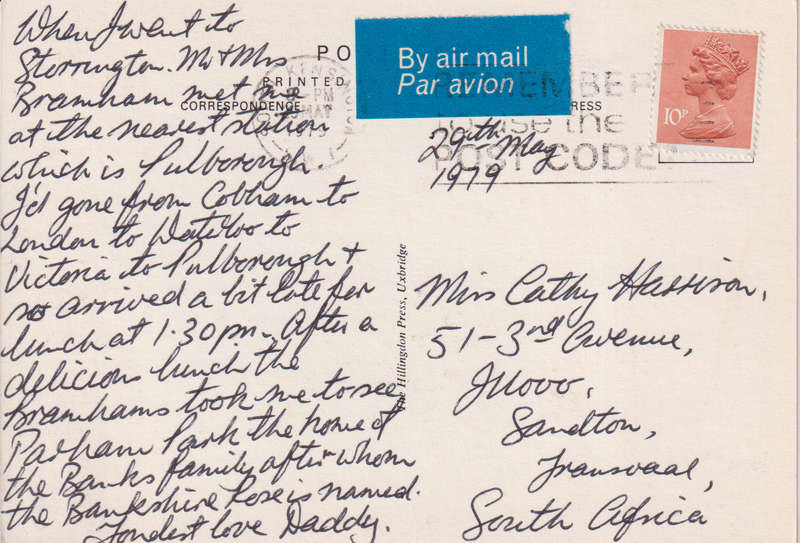 When I went to
Storrington. Mr & Mrs
Bramham met me
at the nearest station
which is Pulborough.
I'd gone from Cobham to
London to Waterloo to
Victoria to Pulborough &
so arrived a bit late for
lunch at 1.30pm. After a
delicious lunch the
Bramhams took me to see
Parham Park the home of
the Banks family after whom
the Bankshire Rose is named.
Fondest love Daddy.
PO
PRINTED
CORRESPONDENCE
By air mail
Par avion
RESS
REMEMBER
use the
POST CODE
10P
29th May
1979
The Hillingdon Press, Uxbridge
Miss Cathy Harrison,
51-3rd Avenue,
Illovo,
Sandton,
Transvaal,
South Africa